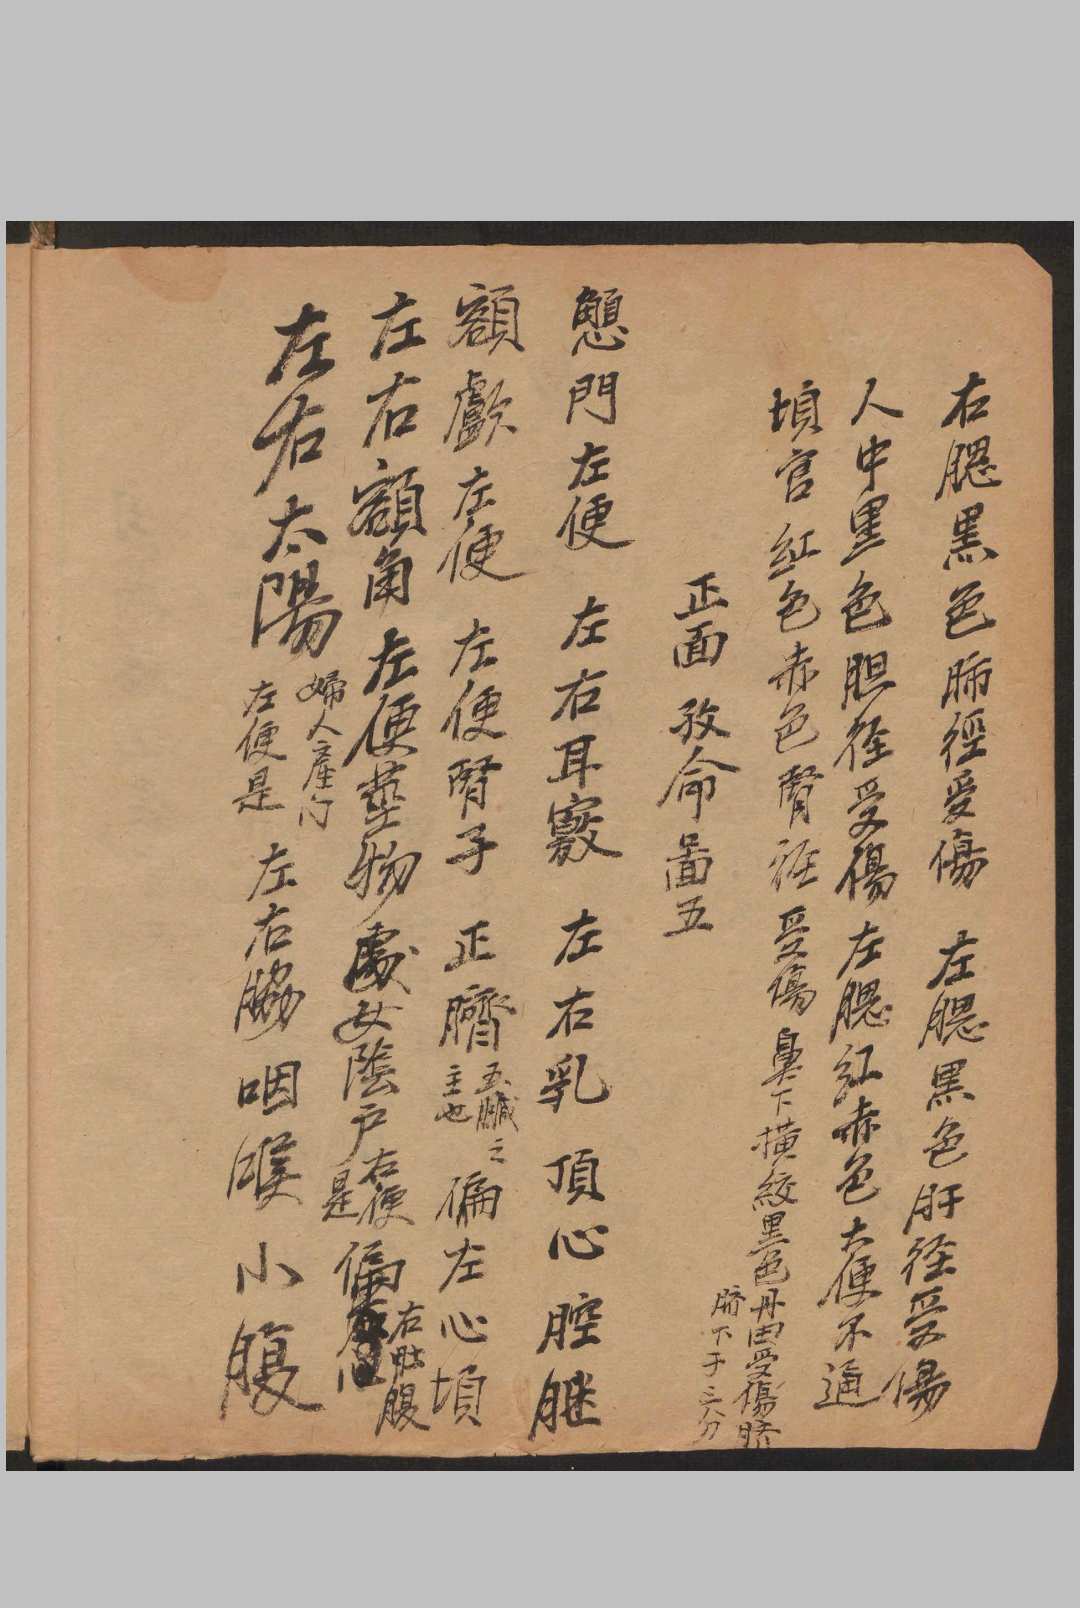 右腮黑色肺徑受傷 左腮黑色肝径受傷
人中黑色胆径受傷左腮紅赤色大便不通
頃官紅色赤色腎径受傷鼻下横絞黑色丹田受傷臍
臍下于三分
正面致命圖五
顖門左便 左右耳竅 左右乳 頂心腔
額顱左便 左便腎子 正臍五臟之主也偏左心頃
左右額角左便莖物處女陰戶右便是偏右肚腹
左右太陽婦人產门左便是 左右脇 咽喉 小腹